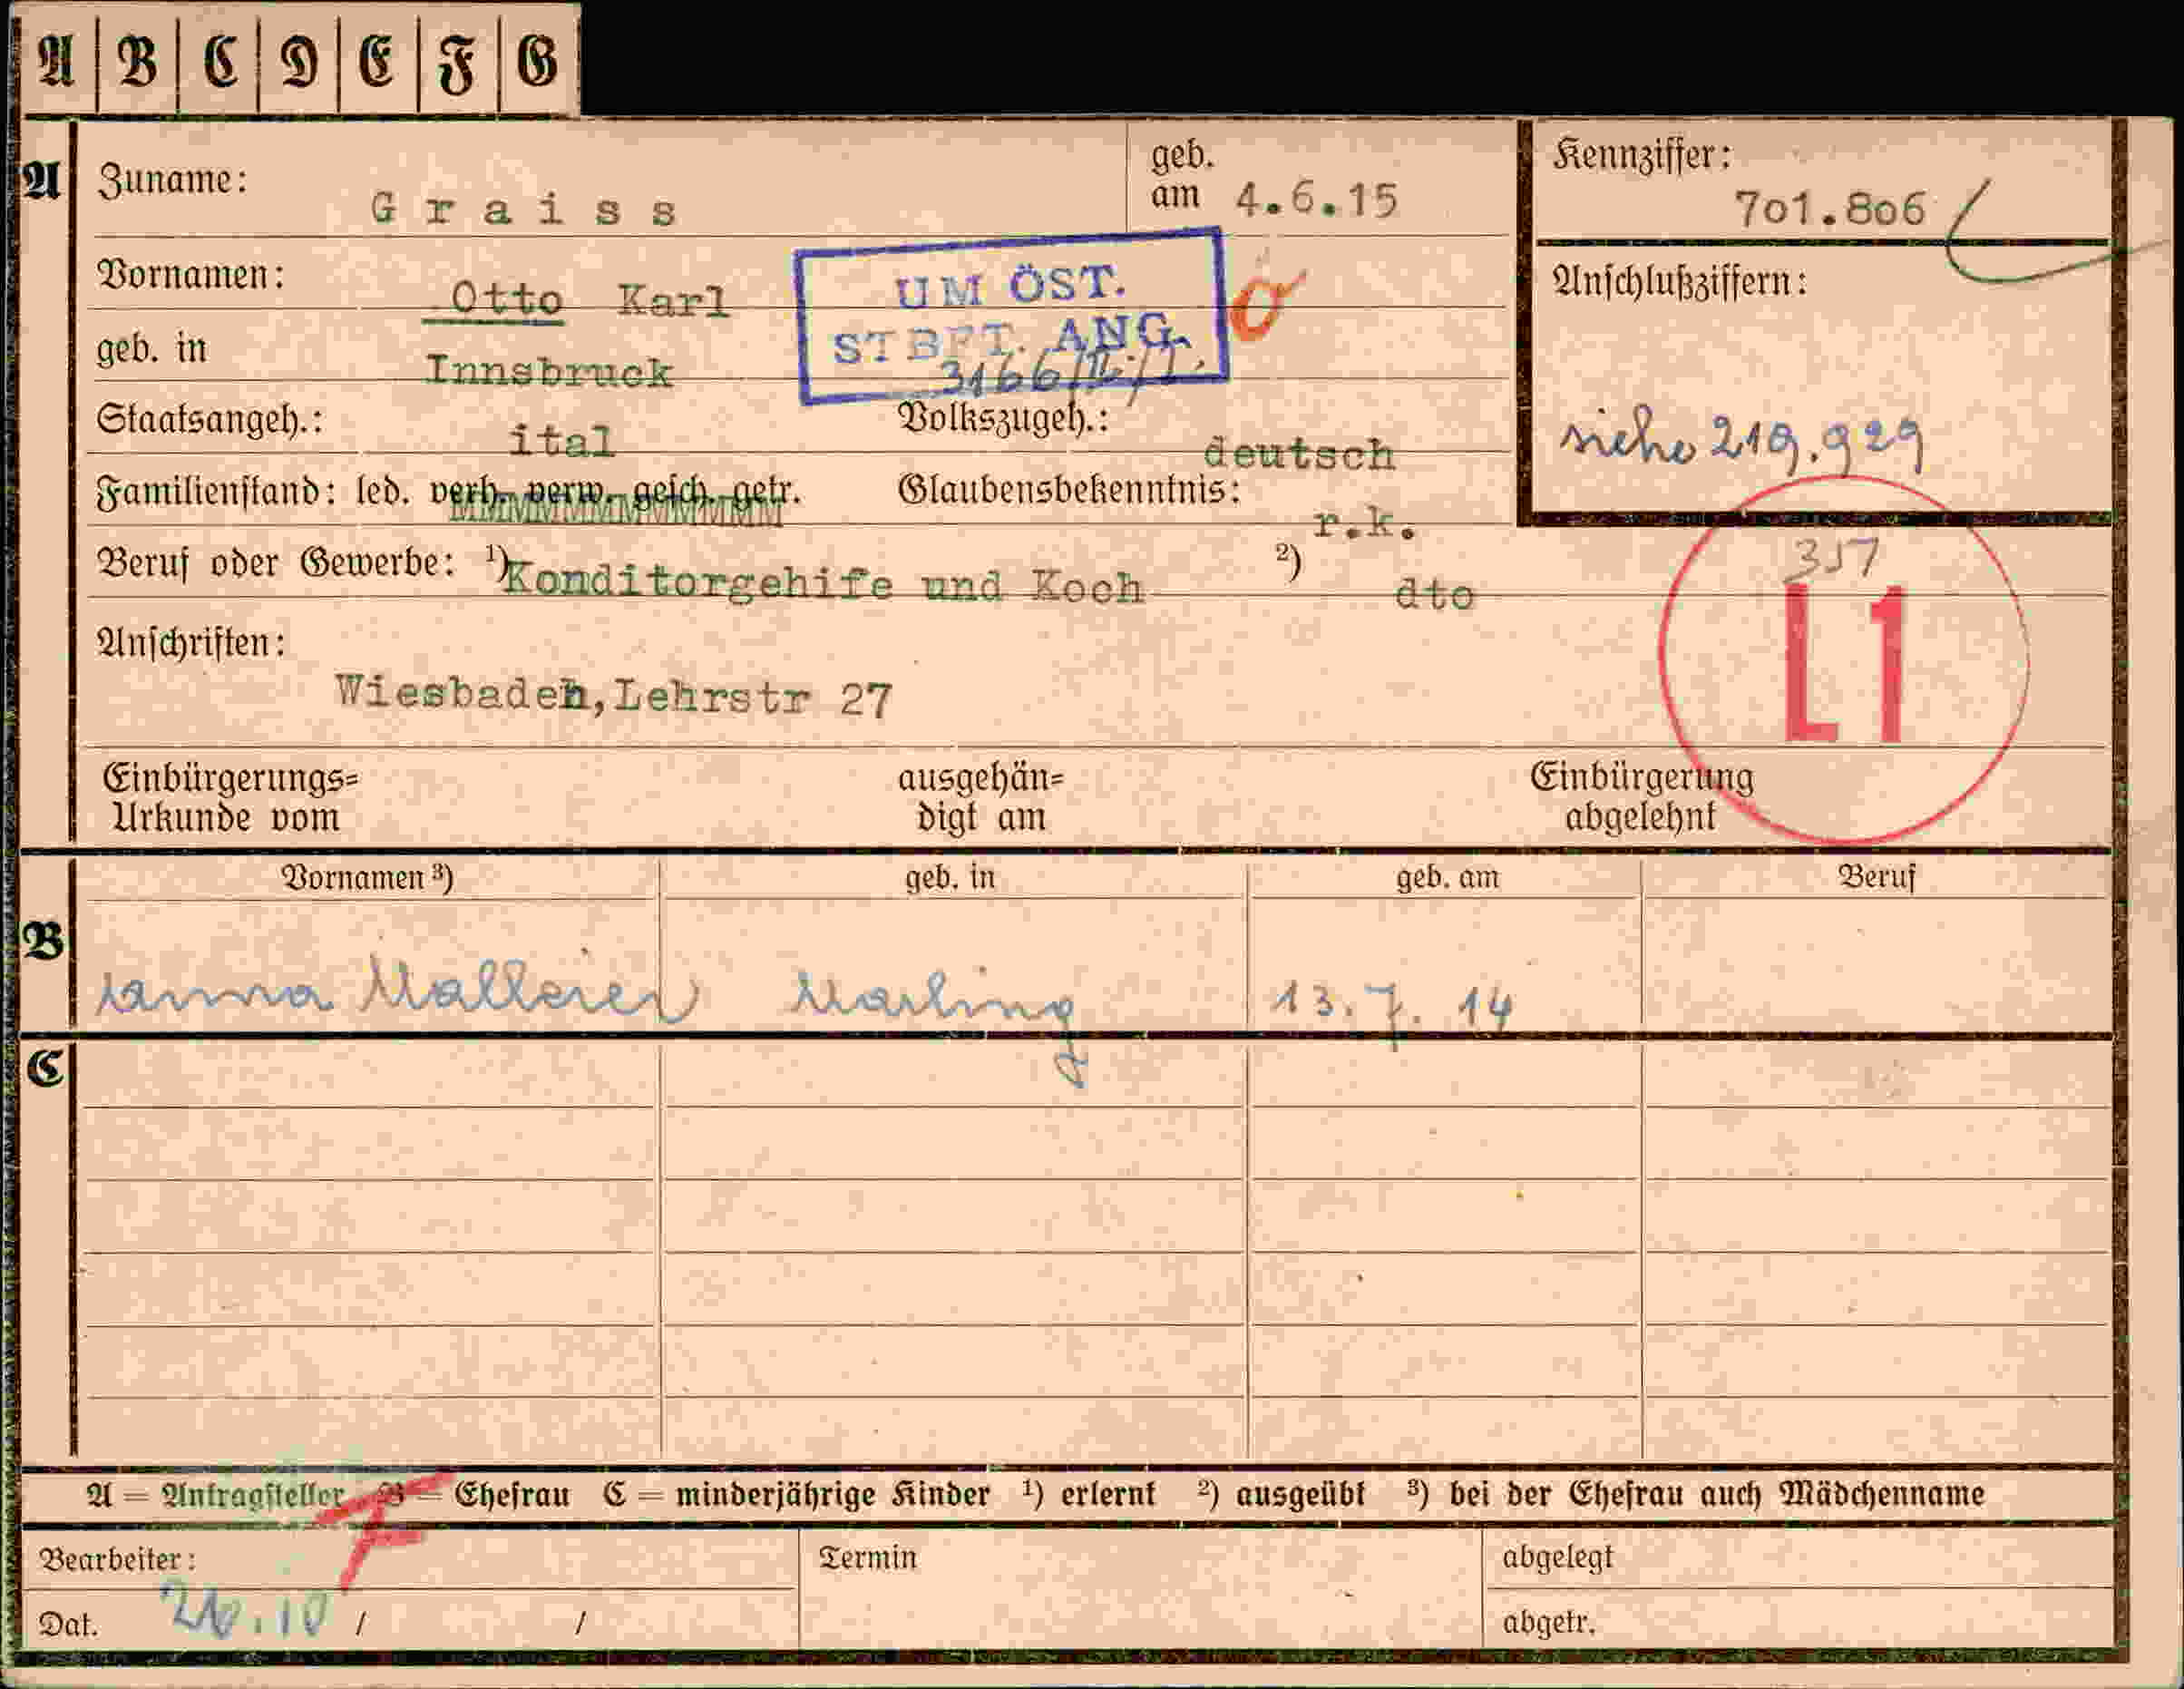 A B C D E F G
A
Zuname: Graiss
geb. am 4.6.15
Kennziffer: 701.806
Vornamen: Otto Karl
UM ÖST.
STBFT. ANG.
3166/II/1.
Anschlußziffern:
siehe 219.929
geb. in Innsbruck
Staatsangeh.: ital
Volkszugeh.: deutsch
Familienstand: led. verh. verw. gesch. getr.
Glaubensbekenntnis: r.k.
Beruf oder Gewerbe: ¹) Konditorgehife und Koch ²) dto
317
L1
Anschriften:
Wiesbaden,Lehrstr 27
Einbürgerungs=
Urkunde vom
ausgehän=
digt am
Einbürgerung
abgelehnt
Vornamen ³) geb. in geb. am Beruf
B
Anna Malleier Marling 13.7.14
C
A = Antragsteller B = Ehefrau C = minderjährige Kinder ¹) erlernt ²) ausgeübt ³) bei der Ehefrau auch Mädchenname
Bearbeiter:
Termin
abgelegt
Dat. / /
abgetr.